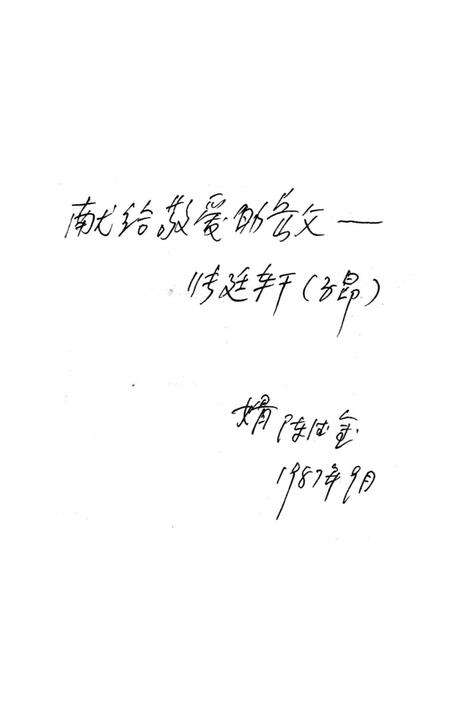 献给敬爱的岳父—
廷轩(子昂)
婿 陈 金
1987年9月